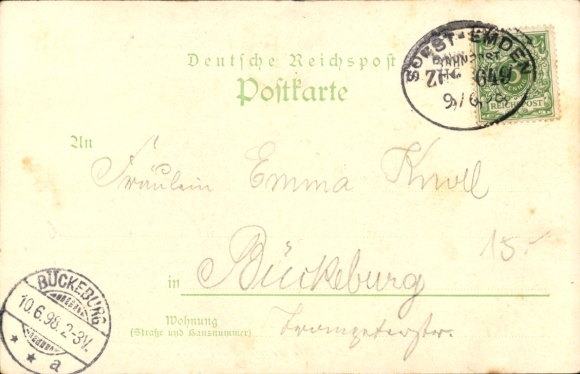 Deutsche Reichspost
Postkarte
SOEST-EMDEN
BAHNPOST
ZUG 649
9/6 98
REICHSPOST
An
Fräulein Emma Knoll
15.-
in Bückeburg
Wohnung
(Straße und Hausnummer)
Trompeterstr.
BÜCKEBURG
10.6.98.2-3V.
* * a